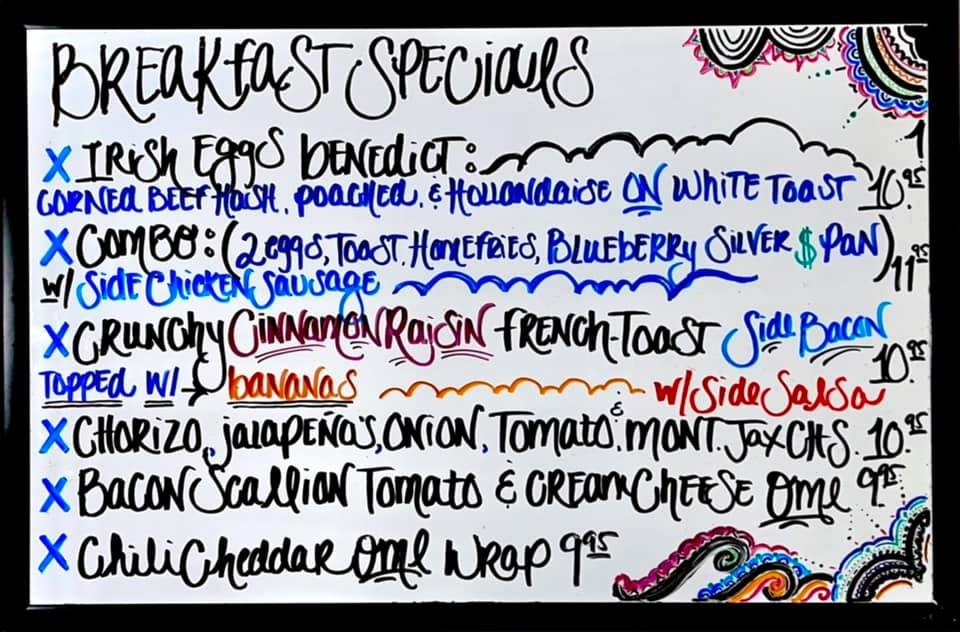 BREAKFAST SPECIALS
X IRISH EGGS BENEDICT:
CORNED BEEF HASH, POACHED, & HOLLANDAISE ON WHITE TOAST 10.95
X COMBO: (2 EGGS, TOAST, HOMEFRIES, BLUEBERRY SILVER $ PAN)
W/ SIDE CHICKEN SAUSAGE 11.95
X CRUNCHY CINNAMON RAISIN FRENCH-TOAST Side Bacon
TOPPED W/ → bananas 10.95
w/ Side Salsa
X CHORIZO, jalapeños, ONION, Tomato & MONT. JAX CHS. 10.95
X BACON Scallion Tomato & CREAM CHEESE OME 9.95
X Chili Cheddar OME WRAP 9.95